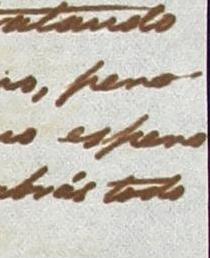 atando
no, pero
no espero
abrás todo